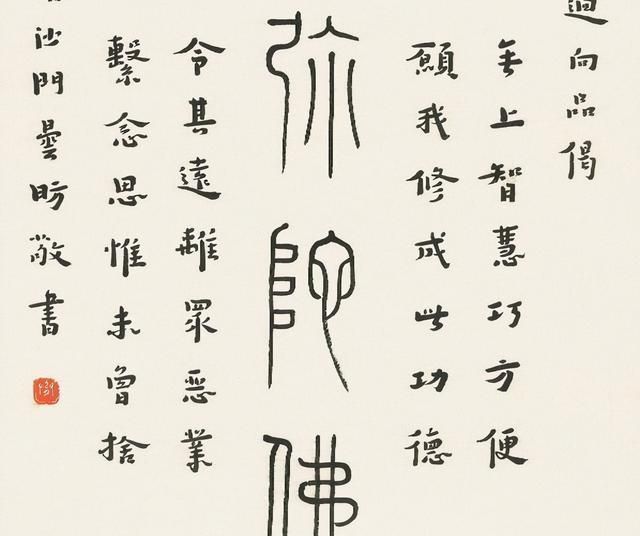 迴向品偈
無上智慧巧方便
願我修成此功德
弥陀佛
令其遠離眾惡業
繫念思惟未曾捨
沙門曇昉敬書